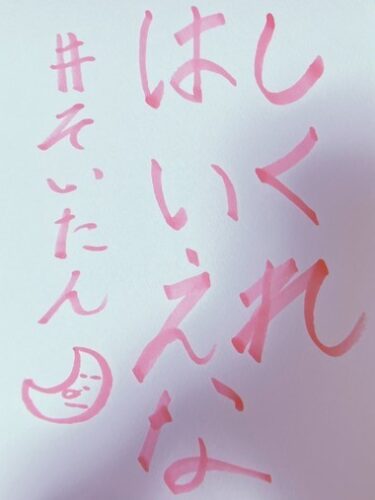 しくれ
はいえな
#そいたん